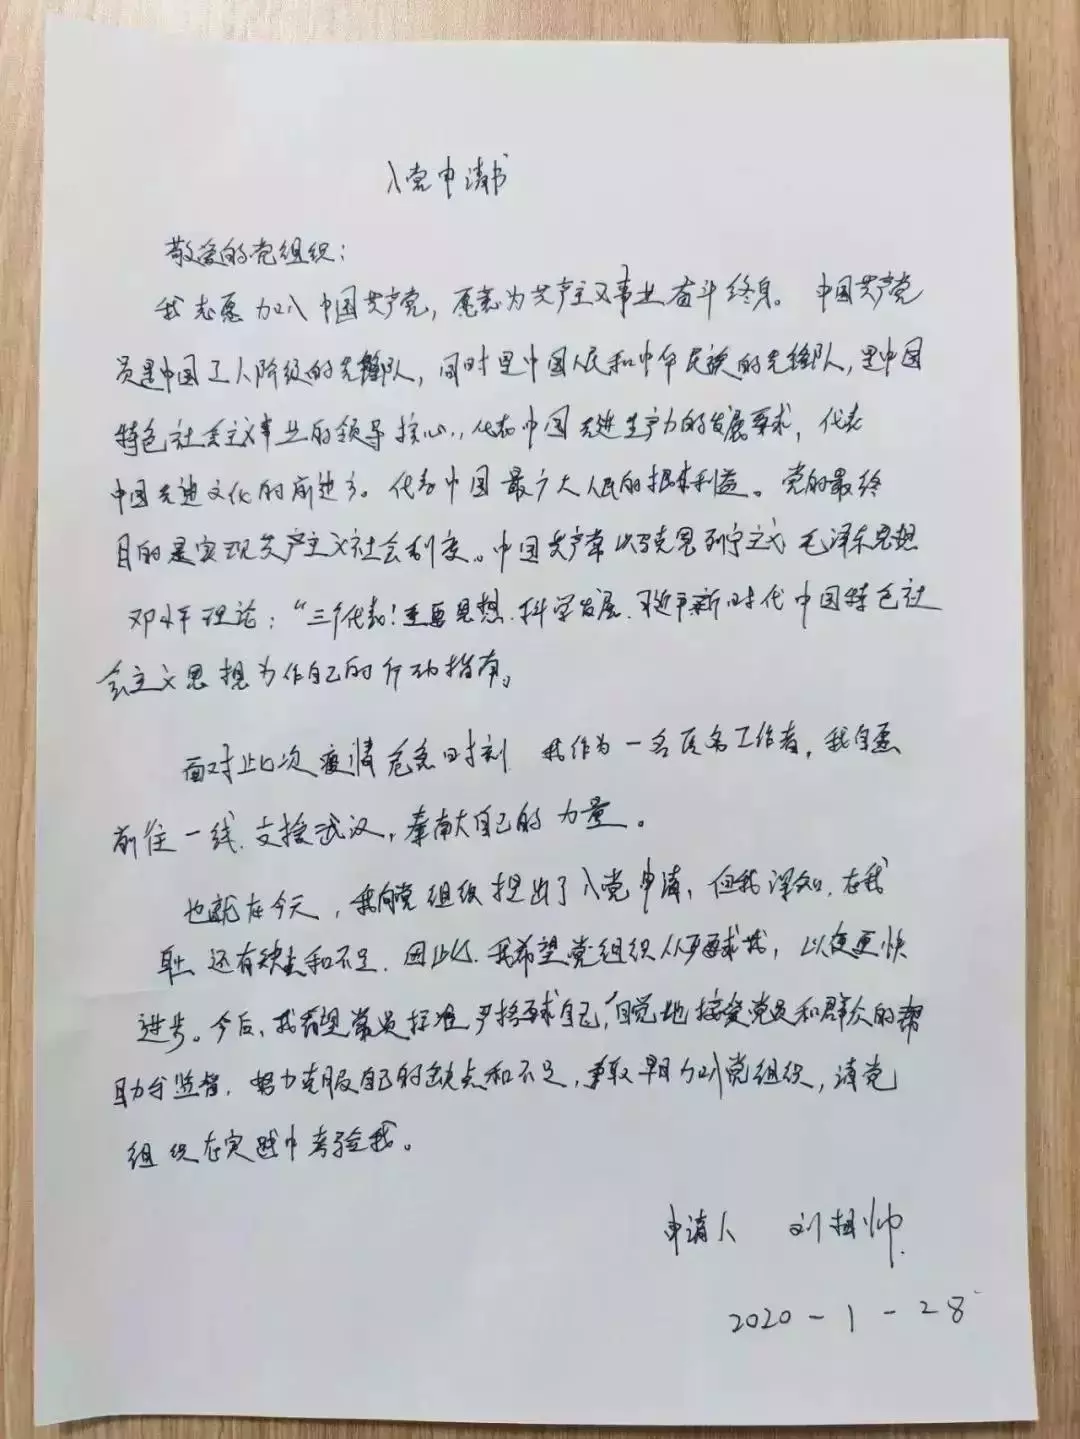 入党申请书
敬爱的党组织：
我志愿加入中国共产党，愿意为共产主义事业奋斗终身。中国共产党
员是中国工人阶级的先锋队，同时是中国人民和中华民族的先锋队，是中国
特色社会主义事业的领导核心，代表中国先进生产力的发展要求，代表
中国先进文化的前进方。代表中国最广大人民的根本利益。党的最终
目的是实现共产主义社会制度。中国共产党以马克思列宁主义 毛泽东思想
邓小平理论：“三个代表！重要思想．科学发展．习近平新时代中国特色社
会主义思想为作自己的行动指南。
面对此次疫情危急时刻 我作为一名医务工作者，我自愿
前往一线．支援武汉，奉献自己的力量。
也就在今天，我向党组织提出了入党申请，但我深知．在我
身上还有缺点和不足．因此．我希望党组织从严要求我，以便更快
进步。今后，我希望党员标准严格要求自己，自觉地接受党员和群众的帮
助与监督．努力克服自己的缺点和不足，争取早日加入党组织，请党
组织在实践中考验我。
申请人 刘 帅
2020-1-28